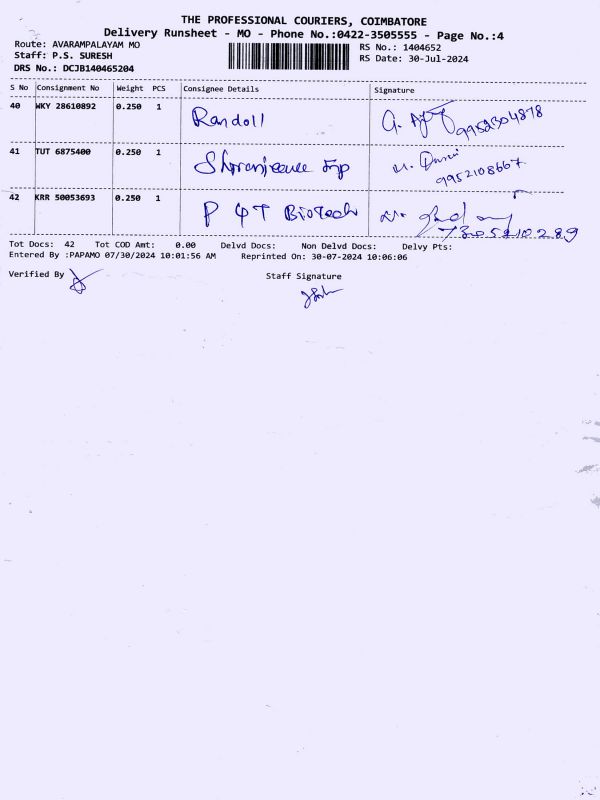 THE PROFESSIONAL COURIERS, COIMBATORE
Delivery Runsheet - MO - Phone No.:0422-3505555 - Page No.:4
Route: AVARAMPALAYAM MO
Staff: P.S. SURESH
DRS No.: DCJB140465204
RS No.: 1404652
RS Date: 30-Jul-2024
S No Consignment No Weight PCS Consignee Details Signature
40 WKY 28610892 0.250 1 Randoll 9952304878
41 TUT 6875400 0.250 1 9952108667
42 KRR 50053693 0.250 1 P & T Biotech 7305910289
Tot Docs: 42 Tot COD Amt: 0.00 Delvd Docs: Non Delvd Docs: Delvy Pts:
Entered By :PAPAMO 07/30/2024 10:01:56 AM Reprinted On: 30-07-2024 10:06:06
Verified By Staff Signature